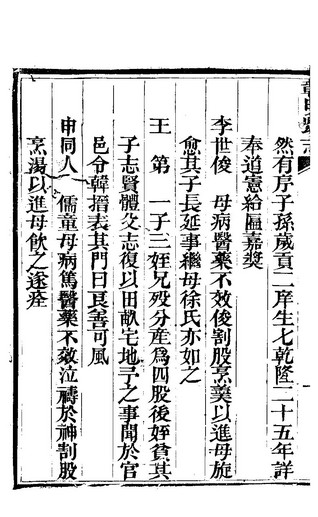 然有序子孫歲貢一庠生七乾隆二十五年詳
奉道憲給匾嘉獎
李世俊　母病醫藥不效俊割股烹羹以進母旋
愈其子長延事繼母徐氏亦如之
王　第　一子三姪兄歿分産爲四股後姪貧其
子志賢體父志復以田畝宅地予之事聞於官
邑令韓搢表其門曰艮善可風
申同人　儒童母病篤醫藥不效泣禱於神割股
烹湯以進母飲之遂痊